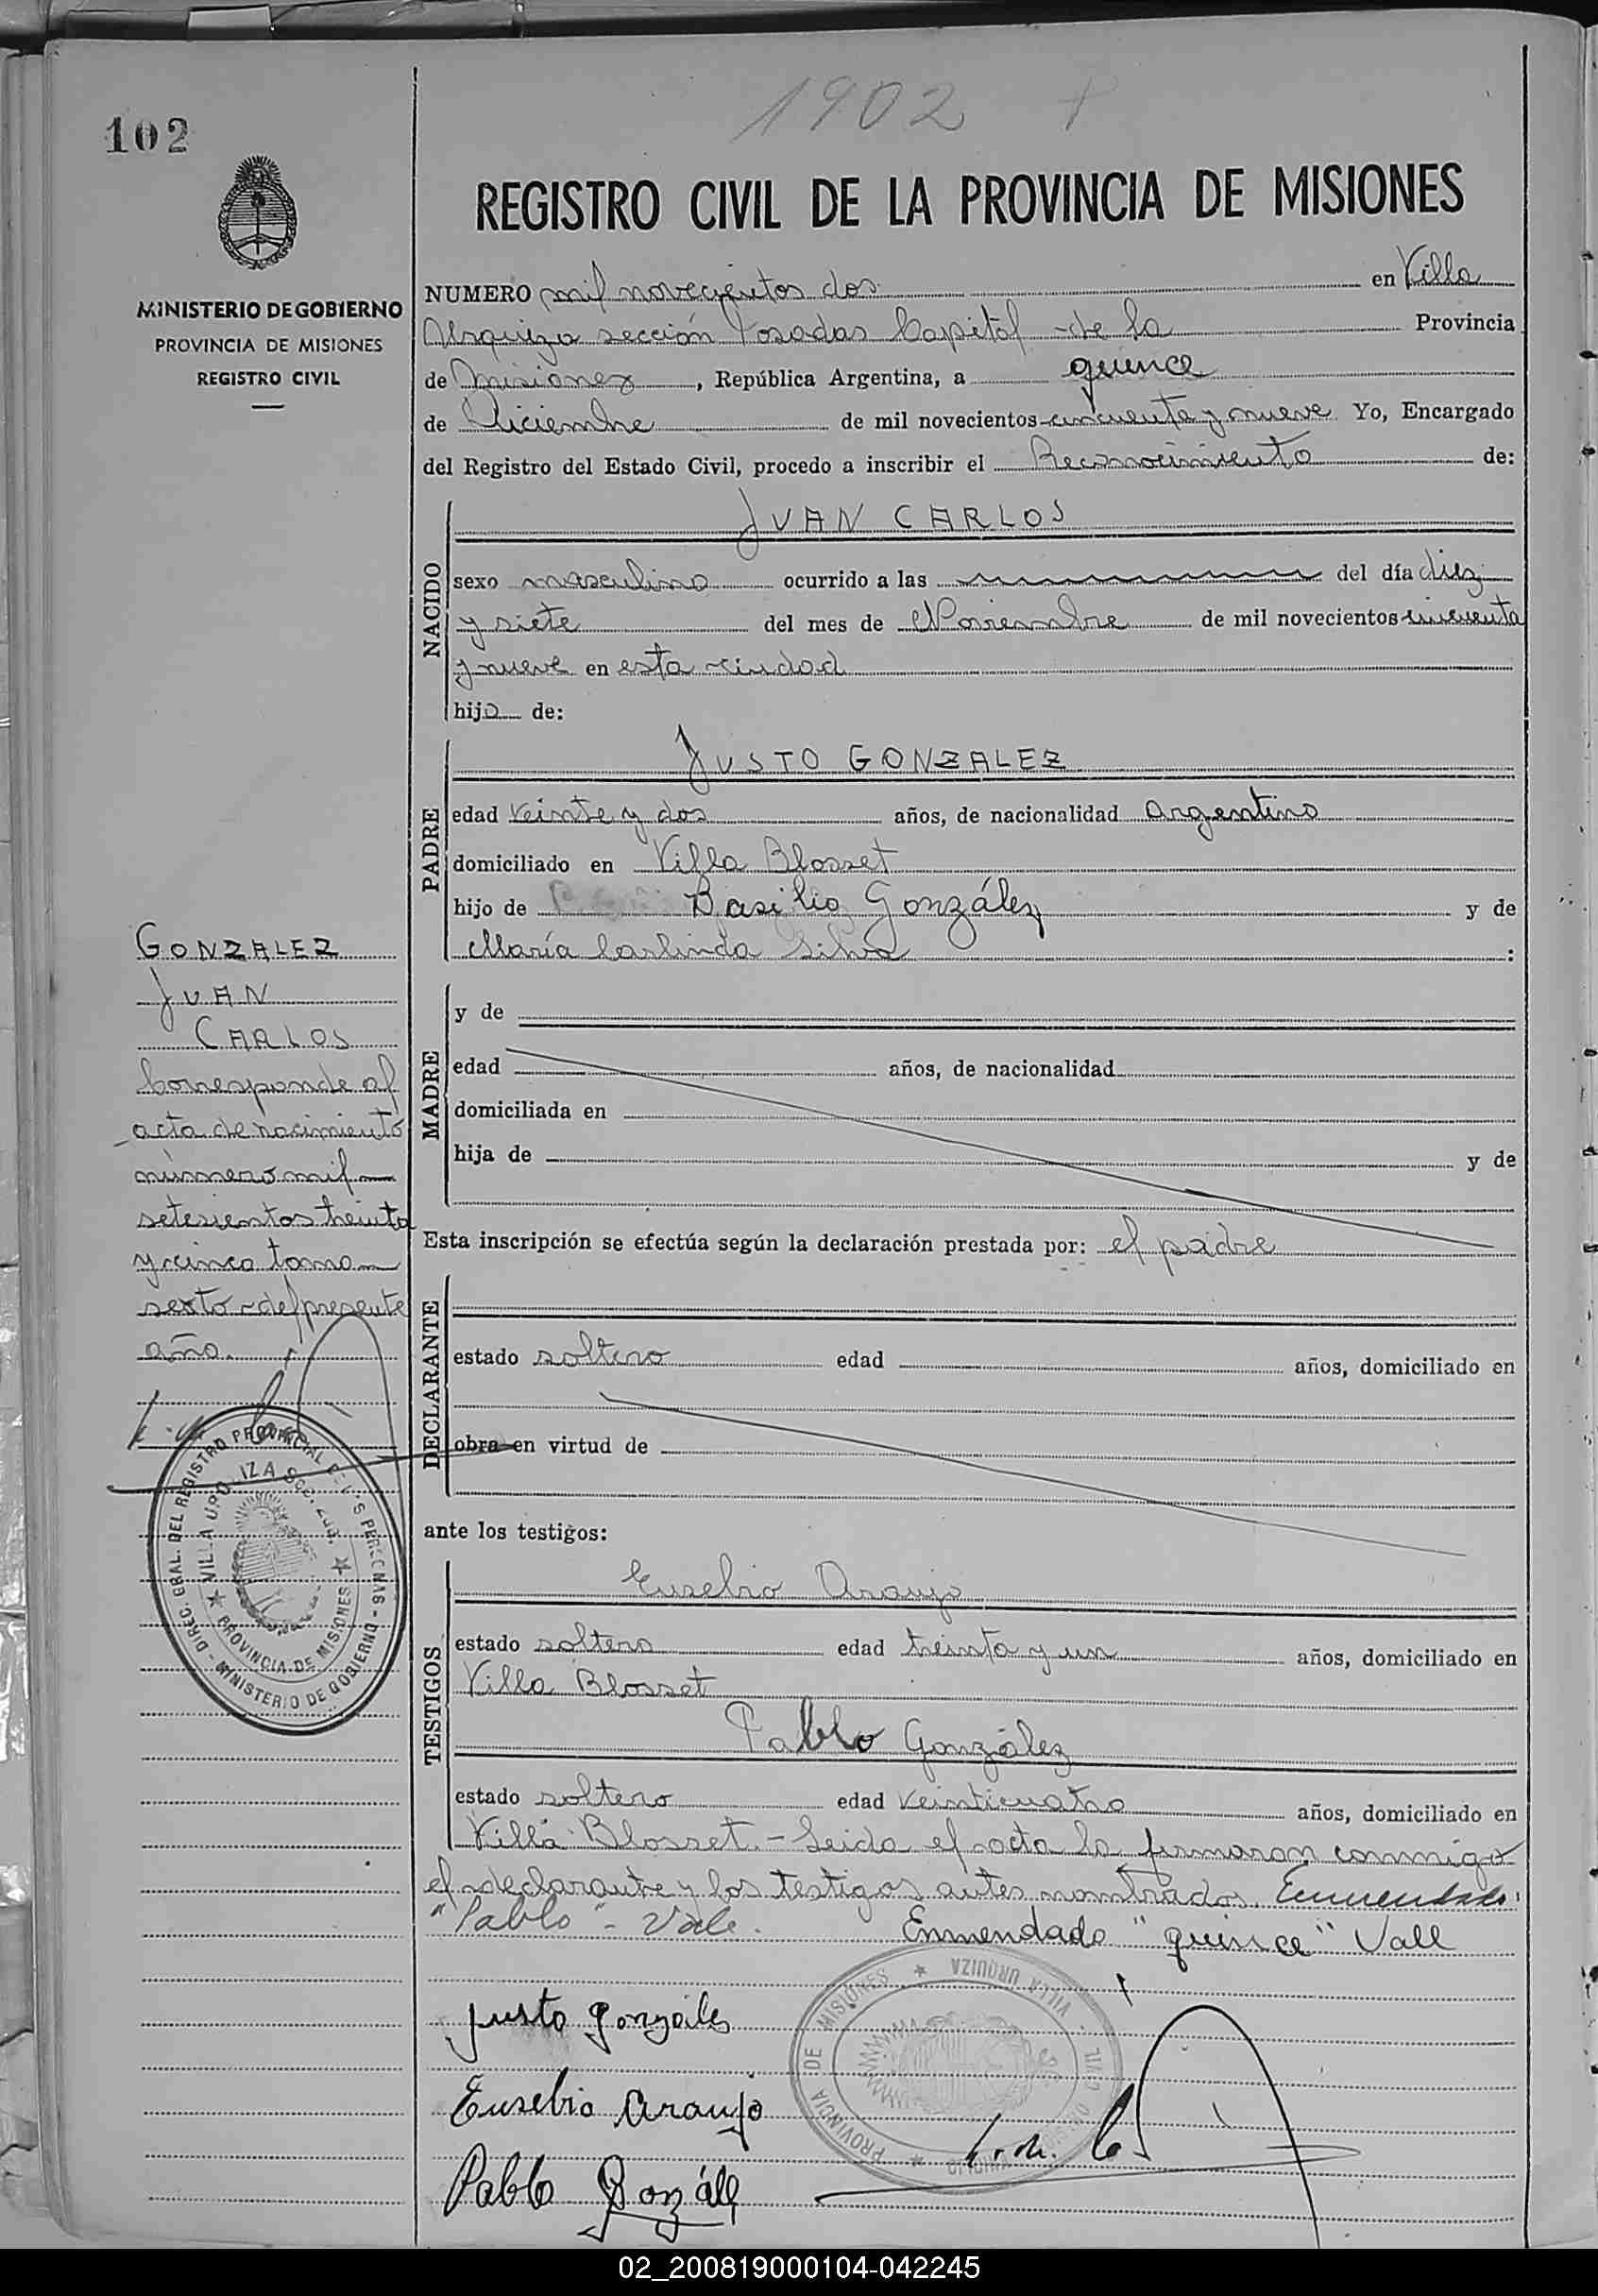 1902
102
REGISTRO CIVIL DE LA PROVINCIA DE MISIONES
MINISTERIO DE GOBIERNO
PROVINCIA DE MISIONES
REGISTRO CIVIL
NUMERO mil novecientos dos en Villa
Urquiza sección Posadas Capital de la Provincia
de Misiones, República Argentina, a quince
de Diciembre de mil novecientos cincuenta y nueve Yo, Encargado
del Registro del Estado Civil, procedo a inscribir el Reconocimiento de:
NACIDO
JUAN CARLOS
sexo masculino ocurrido a las del día diez
y siete del mes de Noviembre de mil novecientos cincuenta
y nueve en esta ciudad
hijo de:
PADRE
JUSTO GONZALEZ
edad veinte y dos años, de nacionalidad Argentino
domiciliado en Villa Blosset
hijo de Basilio González y de
María Carlinda Silva :
GONZALEZ
JUAN
CARLOS
Corresponde al
acta de nacimiento
número mil
setesientos treinta
y cinco tomo
sexto del presente
año.
MADRE
y de
edad años, de nacionalidad
domiciliada en
hija de y de
Esta inscripción se efectúa según la declaración prestada por: el padre
DECLARANTE
estado soltero edad años, domiciliado en
obra en virtud de
ante los testigos:
TESTIGOS
Eusebio Araujo
estado soltero edad treinta y un años, domiciliado en
Villa Blosset
Pablo González
estado soltero edad veinticuatro años, domiciliado en
Villa Blosset.- Leida el acta la firmaron conmigo
el declarante y los testigos antes nombrados. Enmendado:
"Pablo" - Vale. Enmendado "quince" Vale
DIREC. GRAL. DEL REGISTRO PROVINCIAL DE PERSONAS - MINISTERIO DE GOBIERNO
VILLA URQUIZA
PROVINCIA DE MISIONES
VILLA URQUIZA
PROVINCIA DE MISIONES
Justo Gonzáles
Eusebio Araujo
Pablo Gonzále
02_200819000104-042245